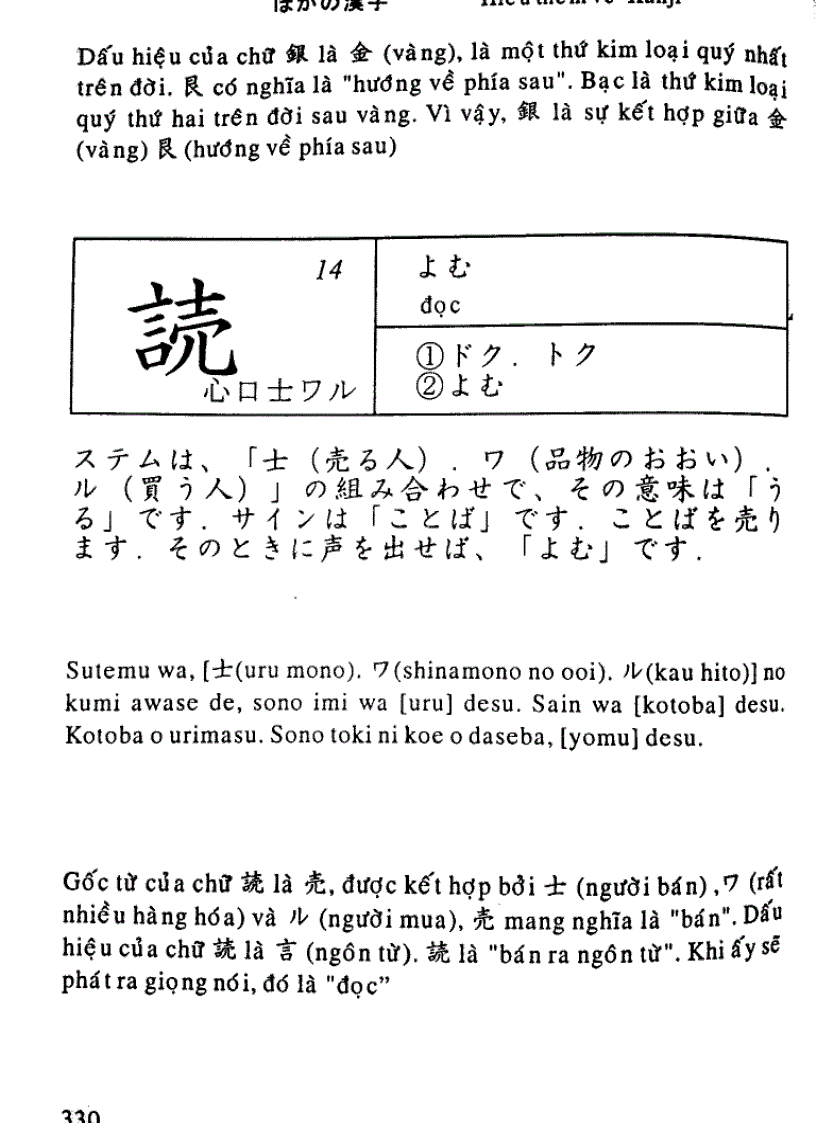 ほかの漢字 Hiểu thêm về Kanji
Dấu hiệu của chữ 銀 là 金 (vàng), là một thứ kim loại quý nhất
trên đời. 艮 có nghĩa là "hướng về phía sau". Bạc là thứ kim loại
quý thứ hai trên đời sau vàng. Vì vậy, 銀 là sự kết hợp giữa 金
(vàng) 艮 (hướng về phía sau)
14
読
心口士ワル
よむ
đọc
①ドク. トク
②よむ
ステムは、「士（売る人）. ワ（品物のおおい）.
ル（買う人）」の組み合わせで、その意味は「う
る」です. サインは「ことば」です. ことばを売り
ます. そのときに声を出せば、「よむ」です.
Sutemu wa, [士(uru mono). ワ(shinamono no ooi). ル(kau hito)] no
kumi awase de, sono imi wa [uru] desu. Sain wa [kotoba] desu.
Kotoba o urimasu. Sono toki ni koe o daseba, [yomu] desu.
Gốc từ của chữ 読 là 売, được kết hợp bởi 士 (người bán) ,ワ (rất
nhiều hàng hóa) và ル (người mua), 売 mang nghĩa là "bán". Dấu
hiệu của chữ 読 là 言 (ngôn từ). 読 là "bán ra ngôn từ". Khi ấy sẽ
phát ra giọng nói, đó là "đọc”
330